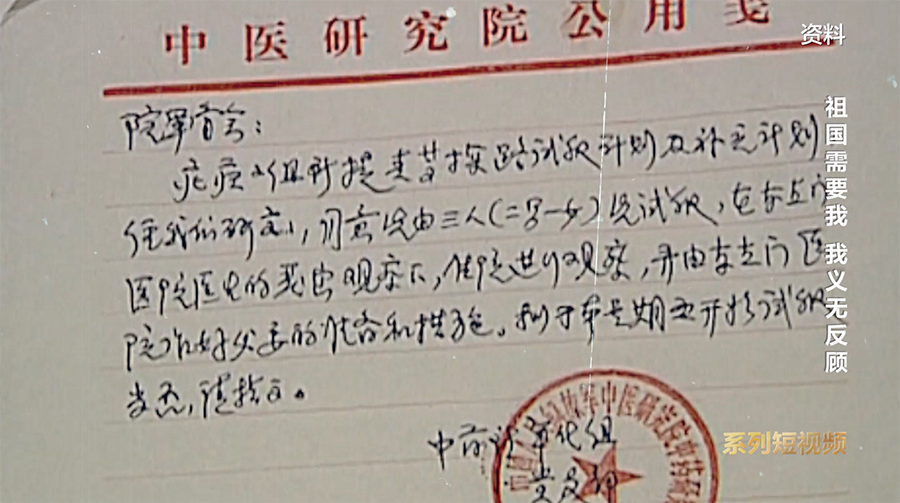 中医研究院公用笺
资料
院军管会：
疟疾小组新提青蒿探路试服计划及补充计划
经我们研究，同意先由三人（二男一女）先试服，在东直门
医院医生的严密观察下，住院进行观察，并由东直门医
院作好必要的准备和措施。拟于本星期五开始试服
当否，请指示。
中药
组
中医研究院中药
祖国需要我 我义无反顾
系列短视频